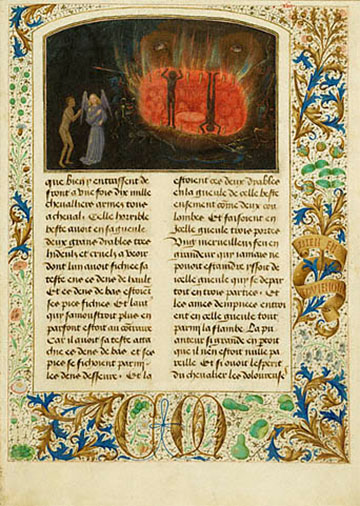 que bien y entrassent de
front a une fois dix mille
chevalliers armez tous
a cheval. Celle horrible
beste avoit en sa gueule
deux grans diables tres
hideux et cruelz a veoir
dont lun avoit fichee sa
teste
es dens de hault
et
dens de bas estoient
ses piez fichies. Et lautre
estoit au contraire
Car il avoit sa teste
dens de bas. et ses
piez se fichoient parmi
les dens desseure. Et la
estoient ces deux diables
en la gueule de celle beste
ensement come deux co
lombes. Et faisoient en
celle gueule trois portes
Ung merveilleux feu en
grandeur que jamais ne
pouoit estaindre yssoit de
celle gueule qui se depar
toit en trois parties. Et
les ames dempnees entroient
en celle gueule tout
parmi la flambe. La pu
anteur si grande en yssoit
que il nen estoit nulle pa
reille. Et si ouoit lesperit
du chevalier les doloureuses
BIEN EN
AVIENGNE
CM